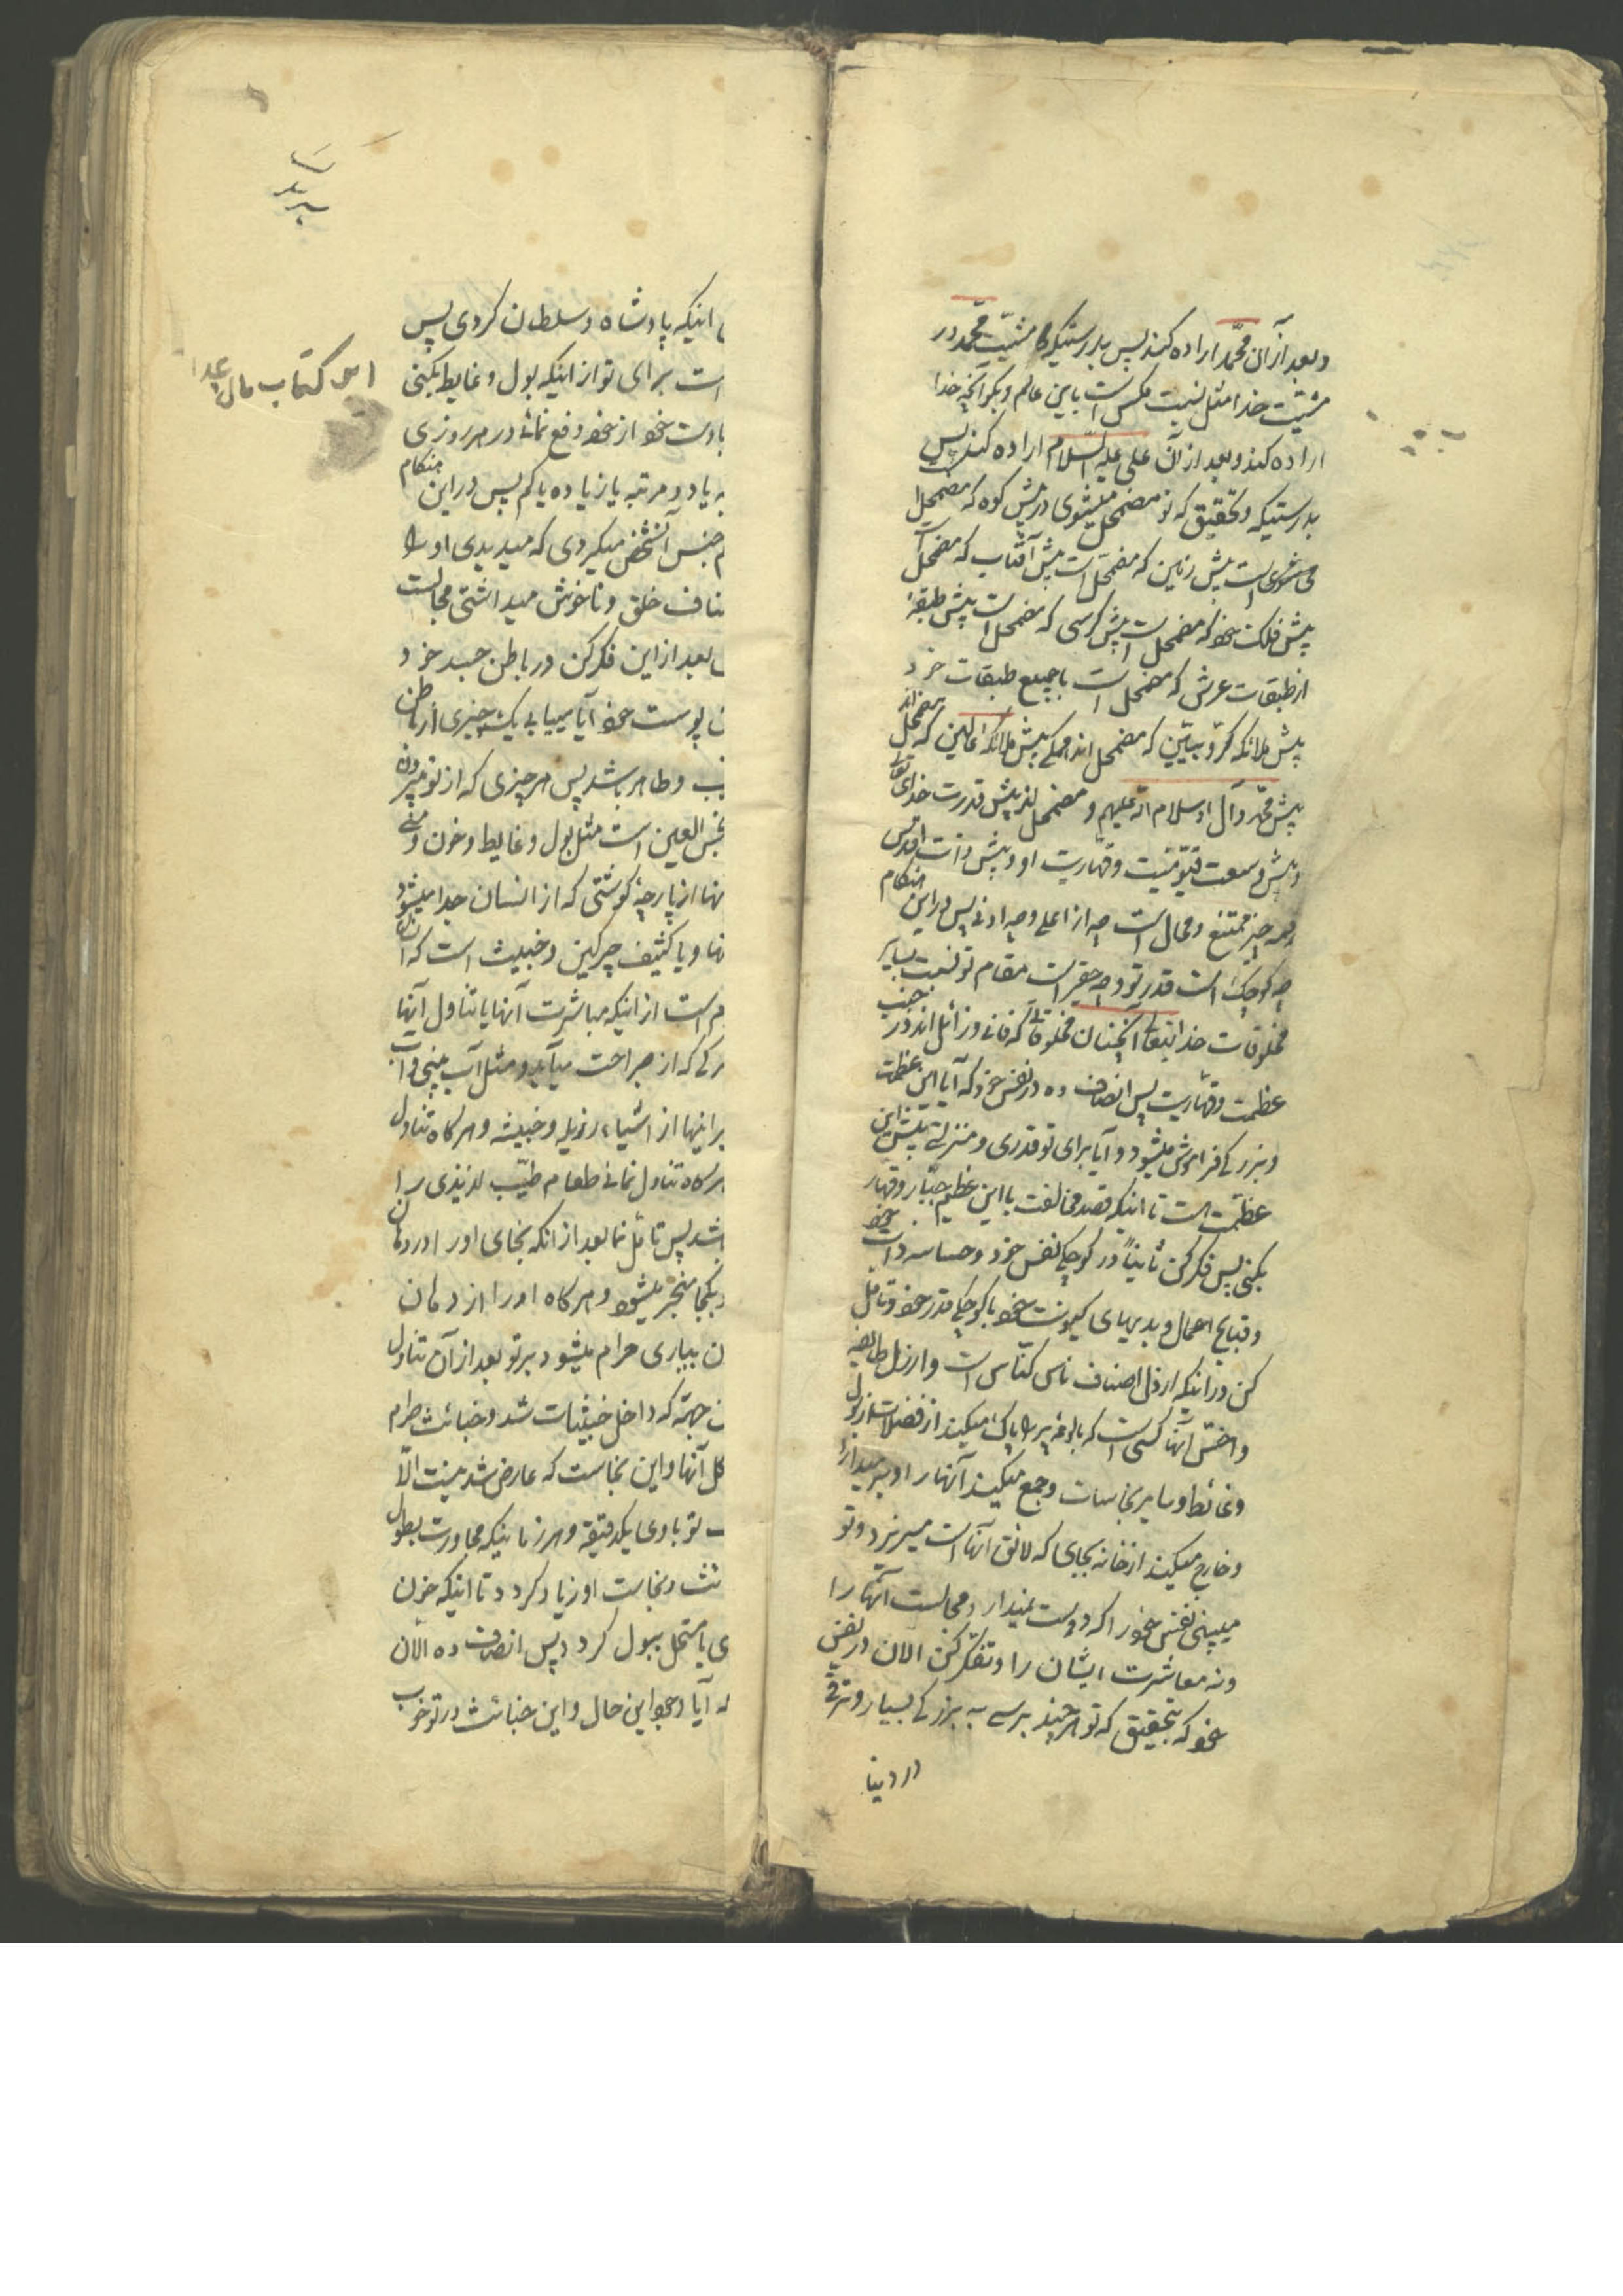 و بعد از آن محمّد اراده کند پس بدرستیکه مشیّت محمّد در
مشیّت خدا مثل نسبت مکس است باین عالم و بگو آنچه خدا
اراده کند و بعد از آن علی علیه السّلام اراده کند پس
بدرستیکه و تحقیق که تو مضمحل میشوی در پیش کوه که مضمحل
است پیش زمین که مضمحل است پیش آفتاب که مضمحل است
پیش فلک خود که مضمحل است پیش کرسی که مضمحل است پیش طبقهٔ
از طبقات عرش که مضمحل است با جمیع طبقات خود
پیش ملائکه کرّوبیّین که مضمحل اند همگی پیش ملائکه عالین که مضمحل اند
پیش محمّد و آل او سلام الله علیهم و مضمحل اند پیش قدرت خدای تعالی
و پیش وسعت قیّومیّت و قهّاریت او و پیش ذات اقدس
همه چیز ممتنع و محال است چه از اعلی و چه ادنی پس در این هنگام
چه کوچک است قدر تو و چه حقیر است مقام تو نسبت بسایر
مخلوقات خدا آنچنان مخلوقاتی که فانی و زائل اند در جنب
عظمت و قهّاریت پس انصاف ده در نفس خود که آیا این عظمت
و بزرگی فراموش میشود و آیا برای تو قدری و منزلتی پیش این
عظمت هست تا اینکه قصد مخالفت با این عظیم جبّار و قهّار
بکنی پس فکر کن ثانیاً در کوچکی نفس خود و خساست ذات خود
و قبایح اعمال و بدیهای کینونت خود با کوچکی قدر خود و تامّل
کن در اینکه ارذل اصناف ناس کنّاس است و ارذل طایفه
و اخسّ آنها کسی است که بالوعه پر را پاک میکند از فضلات از بول
و غائط و سایر نجاسات و جمع میکند آنها را و بر میدارد
و خارج میکند از خانه بجای که لائق آنها است میریزد و تو
میبینی نفس خود را که دوست نمیدارد مجالست آنها را
و نه معاشرت ایشان را و تفکّر کن الان در نفس
خود که بتحقیق که تو هر چند برسی به بزرگی بسیار و ترقی
در دنیا
اینکه پادشاه و سلطان کردی پس
است برای تو از اینکه بول و غایط بکنی
بادست خود از خود دفع نمائی در هر روزی
یا دو مرتبه یا زیاده یا کم پس در این هنگام
جنس آنشخص میکردی که میدیدی او را
صناف خلق و ناخوش میداشتی مجالست
بعد از این فکر کن در باطن جسد خود
پوست خود آیا مییابی یک چیزی از باطن
طیب و طاهر باشد پس هر چیزی که از تو بیرون
نجس العین است مثل بول و غایط و خون و منی
نها از پارچهٔ گوشتی که از انسان جدا میشود
نها و یا کثیف چرکین و خبیث است که انسان
است از اینکه مباشرت آنها یا تناول آنها
رکی که از جراحت میآید و مثل آب بینی و آب
بر اینها از اشیاء رذیله و خبیثه و هرگاه تناول
هرگاه تناول نمائی طعام طیّب لذیذی را
باشد پس تامّل نما بعد از آنکه بجای او را در دهان
بکجا منجر میشود و هرگاه او را از دهان
بیاری حرام میشود بر تو بعد از آن تناول
جهة که داخل خبیثات شد و خبائث حرام
کل آنها و این نجاست که عارض شد نیست الّا
تو با وی یکدقیقه و هر زمانیکه مجاورت بطول
نث و نجاست او زیاد کردد تا اینکه خون
ی یا مستحیل ببول کردد پس انصاف ده الان
آیا وجود این حال و این خبائث در تو خوب
این کتاب مال